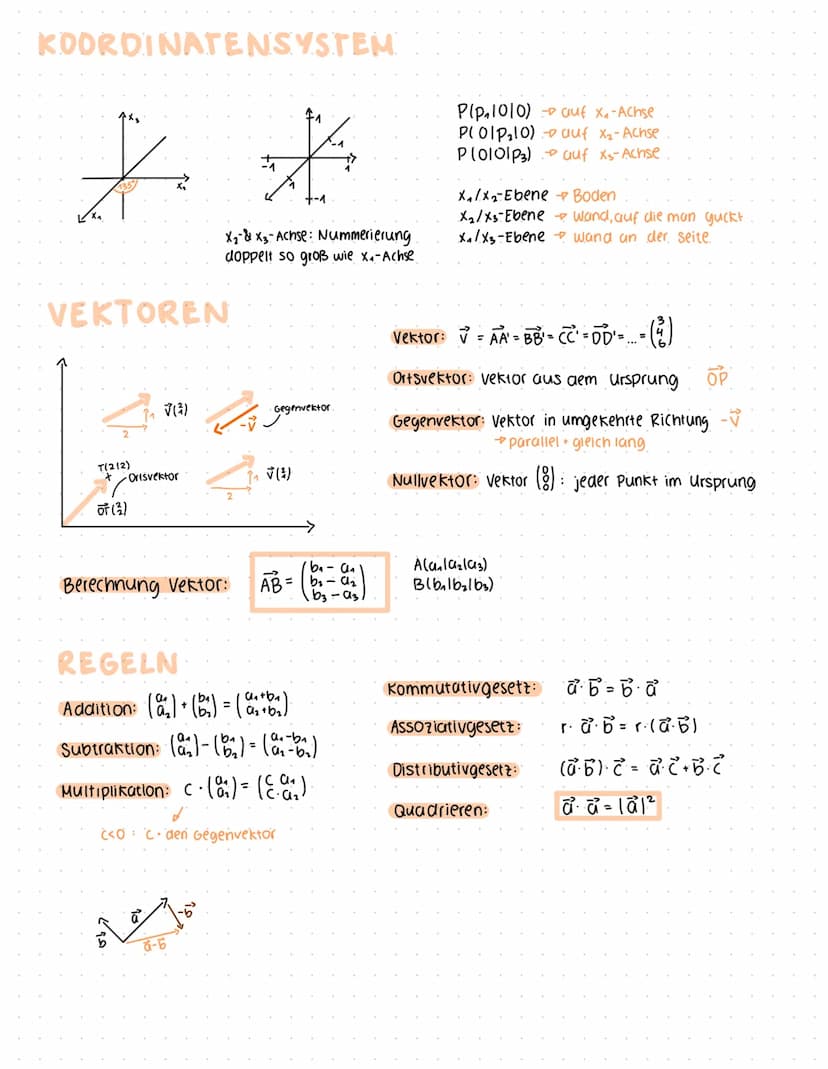 KOORDINATENSYSTEM
x₃
135°
x₂
x₁
1
-1
-1
1
1
-1
x₂- & x₃-Achse: Nummerierung
doppelt so groß wie x₁-Achse
P(p₁|0|0) → auf x₁-Achse
P(0|p₂|0) → auf x₂-Achse
P(0|0|p₃) → auf x₃-Achse
x₁/x₂-Ebene → Boden
x₂/x₃-Ebene → Wand, auf die man guckt
x₁/x₃-Ebene → Wand an der Seite
VEKTOREN
1 v⃗(2 1)
2
-v⃗ Gegenvektor
T(2|2)
Ortsvektor
OT⃗(2 2)
1 v⃗(2 1)
2
Vektor: v⃗ = AA'⃗ = BB'⃗ = CC'⃗ = DD'⃗ = ... = (3 4 6)
Ortsvektor: Vektor aus dem Ursprung OP⃗
Gegenvektor: Vektor in umgekehrte Richtung -v⃗
→ parallel + gleich lang
Nullvektor: Vektor (0 0 0) : jeder Punkt im Ursprung
Berechnung Vektor: AB⃗ = (b₁ - a₁ b₂ - a₂ b₃ - a₃)
A(a₁|a₂|a₃)
B(b₁|b₂|b₃)
REGELN
Addition: (a₁ a₂) + (b₁ b₂) = (a₁+b₁ a₂+b₂)
Subtraktion: (a₁ a₂) - (b₁ b₂) = (a₁-b₁ a₂-b₂)
Multiplikation: c · (a₁ a₂) = (c a₁ c·a₂)
c<0 : c · den Gegenvektor
Kommutativgesetz: a⃗ · b⃗ = b⃗ · a⃗
Assoziativgesetz: r · a⃗ · b⃗ = r · (a⃗ · b⃗)
Distributivgesetz: (a⃗ · b⃗) · c⃗ = a⃗ · c⃗ + b⃗ · c⃗
Quadrieren: a⃗ · a⃗ = |a⃗|²
b⃗
a⃗
-b⃗
a⃗-b⃗